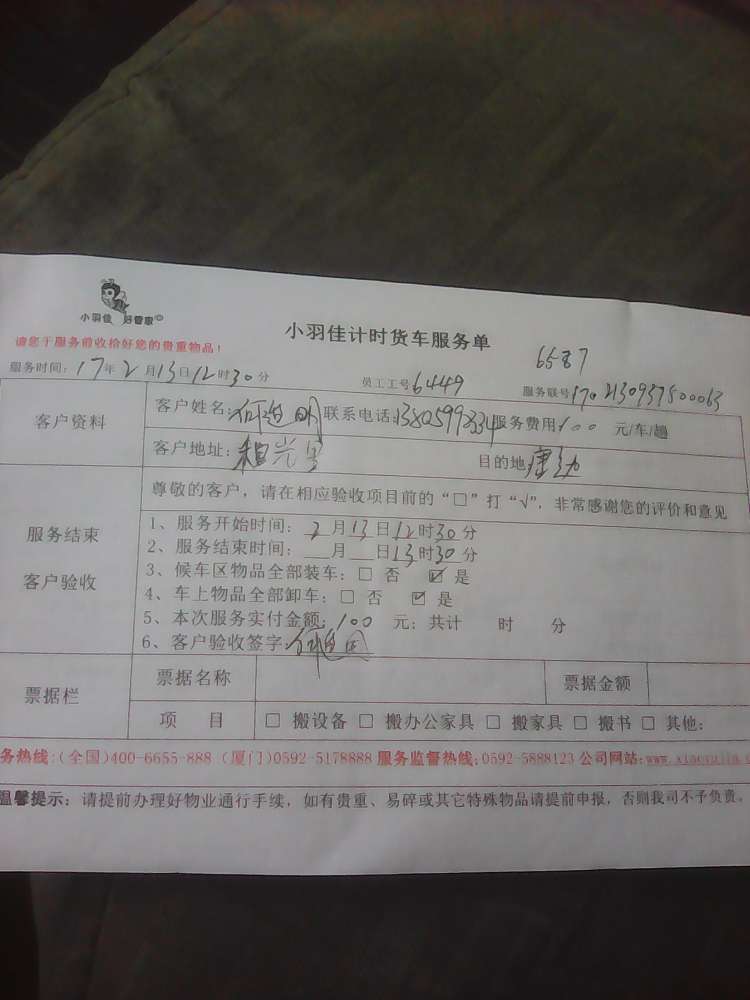 小羽佳 好管家
小羽佳计时货车服务单
请您于服务前收拾好您的贵重物品！
6587
服务时间：17年2月13日12时30分 员工工号6449 服务联号1702130937500063
客户资料
客户姓名： 明 联系电话： 服务费用100 元/车/趟
客户地址： 目的地
服务结束
客户验收
尊敬的客户，请在相应验收项目前的“□”打“√”，非常感谢您的评价和意见
1、服务开始时间：2月13日12时30分
2、服务结束时间：__月__日13时30分
3、候车区物品全部装车：□ 否 ☑ 是
4、车上物品全部卸车：□ 否 ☑ 是
5、本次服务实付金额：100 元；共计 时 分
6、客户验收签字：
票据栏
票据名称 票据金额
项 目 □ 搬设备 □ 搬办公家具 □ 搬家具 □ 搬书 □ 其他：
务热线：(全国)400-6655-888 (厦门)0592-5178888 服务监督热线：0592-5888123 公司网站：www.
温馨提示：请提前办理好物业通行手续，如有贵重、易碎或其它特殊物品请提前申报，否则我司不予负责。